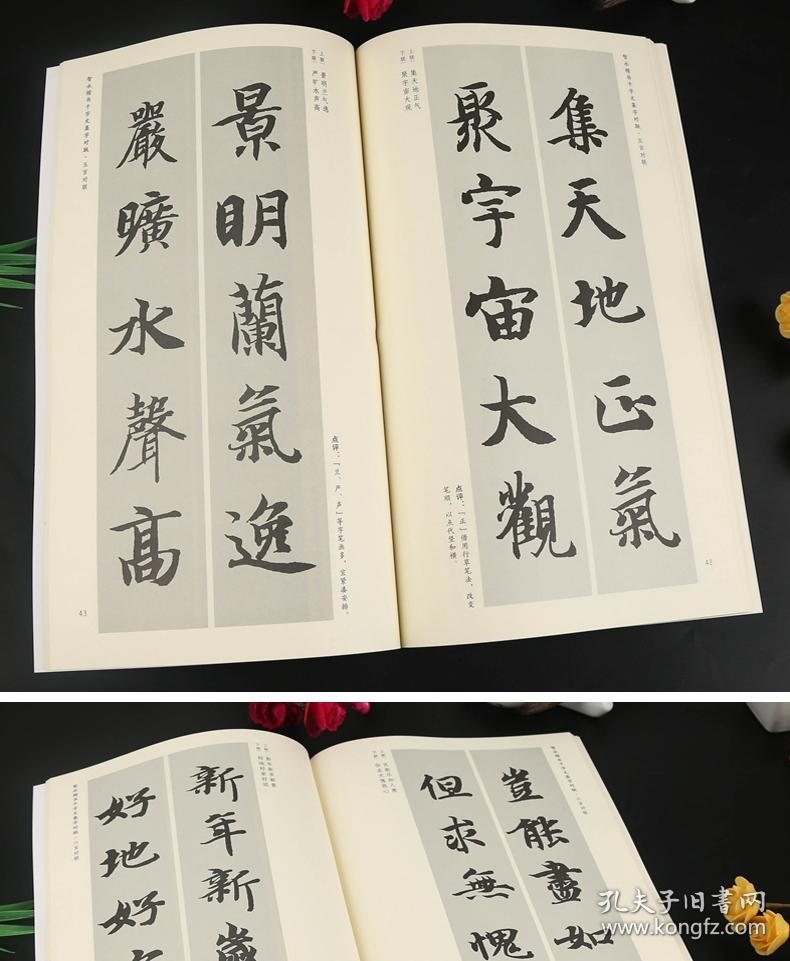 智永楷书千字文集字对联·五言对联
上联 集天地正气
下联 聚宇宙大观
集天地正氣
聚宇宙大觀
点评：「正」借用行草笔法，改变
笔顺，以点代竖和横。
42
上联 景明兰气逸
下联 严旷水声高
景明蘭氣逸
嚴曠水聲高
点评：「兰、严、声」等字笔画多，宜紧凑安排。
智永楷书千字文集字对联·五言对联
43
智永楷书千字文集字对联·六言对联
上联 岂能尽如人意
下联 但求无愧我心
豈能盡如
但求無愧
新年新歲
好地好
智永楷书千字文集字对联·六言对联
孔夫子旧书网
kongfz.com